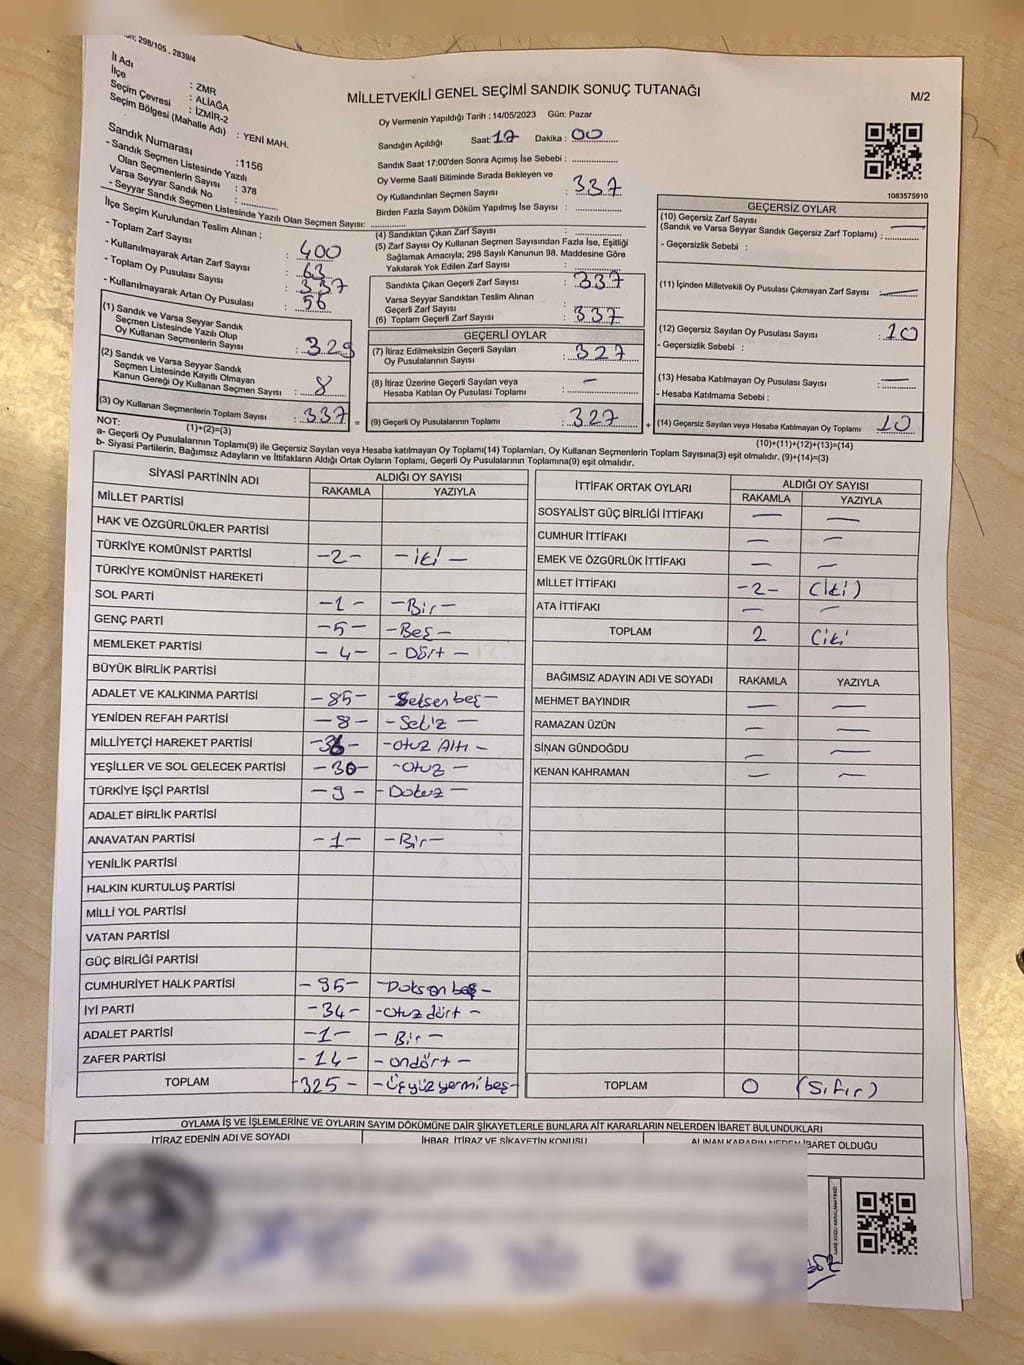 298/105 , 2839/4
İl Adı : ZMR
İlçe : ALİAĞA
Seçim Çevresi : İZMİR-2
Seçim Bölgesi (Mahalle Adı) : YENİ MAH.
Sandık Numarası : 1156
- Sandık Seçmen Listesinde Yazılı
Olan Seçmenlerin Sayısı : 378
Varsa Seyyar Sandık No : ..............
- Seyyar Sandık Seçmen Listesinde Yazılı Olan Seçmen Sayısı: ..............
İlçe Seçim Kurulundan Teslim Alınan ;
- Toplam Zarf Sayısı : 400
- Kullanılmayarak Artan Zarf Sayısı : 63
- Toplam Oy Pusulası Sayısı : 337
- Kullanılmayarak Artan Oy Pusulası : 56
(1) Sandık ve Varsa Seyyar Sandık
Seçmen Listesinde Yazılı Olup
Oy Kullanan Seçmenlerin Sayısı : 329
(2) Sandık ve Varsa Seyyar Sandık
Seçmen Listesinde Kayıtlı Olmayan
Kanun Gereği Oy Kullanan Seçmen Sayısı : 8
(3) Oy Kullanan Seçmenlerin Toplam Sayısı : 337 =
(1)+(2)=(3)
MİLLETVEKİLİ GENEL SEÇİMİ SANDIK SONUÇ TUTANAĞI
M/2
Oy Vermenin Yapıldığı Tarih : 14/05/2023 Gün: Pazar
Sandığın Açıldığı Saat: 17 Dakika : 00
Sandık Saat 17:00'den Sonra Açımış İse Sebebi : ..............
Oy Verme Saati Bitiminde Sırada Bekleyen ve
Oy Kullandırılan Seçmen Sayısı : 337
Birden Fazla Sayım Döküm Yapılmış İse Sayısı : ..............
(4) Sandıktan Çıkan Zarf Sayısı : ..............
(5) Zarf Sayısı Oy Kullanan Seçmen Sayısından Fazla İse, Eşitliği
Sağlamak Amacıyla; 298 Sayılı Kanunun 98. Maddesine Göre
Yakılarak Yok Edilen Zarf Sayısı : ..............
Sandıkta Çıkan Geçerli Zarf Sayısı : 337
Varsa Seyyar Sandıktan Teslim Alınan
Geçerli Zarf Sayısı : ..............
(6) Toplam Geçerli Zarf Sayısı : 337
GEÇERLİ OYLAR
(7) İtiraz Edilmeksizin Geçerli Sayılan
Oy Pusulalarının Sayısı : 327
(8) İtiraz Üzerine Geçerli Sayılan veya
Hesaba Katılan Oy Pusulası Toplamı : —
(9) Geçerli Oy Pusulalarının Toplamı : 327 +
1083575910
GEÇERSİZ OYLAR
(10) Geçersiz Zarf Sayısı
(Sandık ve Varsa Seyyar Sandık Geçersiz Zarf Toplamı) : —
- Geçersizlik Sebebi :
(11) İçinden Milletvekili Oy Pusulası Çıkmayan Zarf Sayısı : —
(12) Geçersiz Sayılan Oy Pusulası Sayısı : 10
- Geçersizlik Sebebi :
(13) Hesaba Katılmayan Oy Pusulası Sayısı : —
- Hesaba Katılmama Sebebi :
(14) Geçersiz Sayılan veya Hesaba Katılmayan Oy Toplamı : 10
(10)+(11)+(12)+(13)=(14)
NOT:
a- Geçerli Oy Pusulalarının Toplamı(9) ile Geçersiz Sayılan veya Hesaba katılmayan Oy Toplamı(14) Toplamları, Oy Kullanan Seçmenlerin Toplam Sayısına(3) eşit olmalıdır. (9)+(14)=(3)
b- Siyasi Partilerin, Bağımsız Adayların ve İttifakların Aldığı Ortak Oyların Toplamı, Geçerli Oy Pusulalarının Toplamına(9) eşit olmalıdır.
SİYASİ PARTİNİN ADI ALDIĞI OY SAYISI
RAKAMLA YAZIYLA
MİLLET PARTİSİ
HAK VE ÖZGÜRLÜKLER PARTİSİ
TÜRKİYE KOMÜNİST PARTİSİ -2- -iki-
TÜRKİYE KOMÜNİST HAREKETİ
SOL PARTİ -1- -Bir-
GENÇ PARTİ -5- -Beş-
MEMLEKET PARTİSİ -4- -Dört-
BÜYÜK BİRLİK PARTİSİ
ADALET VE KALKINMA PARTİSİ -85- -Seksen beş-
YENİDEN REFAH PARTİSİ -8- -Sekiz-
MİLLİYETÇİ HAREKET PARTİSİ -36- -otuz Altı-
YEŞİLLER VE SOL GELECEK PARTİSİ -30- -otuz-
TÜRKİYE İŞÇİ PARTİSİ -9- -Dokuz-
ADALET BİRLİK PARTİSİ
ANAVATAN PARTİSİ -1- -Bir-
YENİLİK PARTİSİ
HALKIN KURTULUŞ PARTİSİ
MİLLİ YOL PARTİSİ
VATAN PARTİSİ
GÜÇ BİRLİĞİ PARTİSİ
CUMHURİYET HALK PARTİSİ -95- -Doksan beş-
İYİ PARTİ -34- -otuz dört-
ADALET PARTİSİ -1- -Bir-
ZAFER PARTİSİ -14- -ondört-
TOPLAM -325- -Üçyüz yermi beş-
İTTİFAK ORTAK OYLARI ALDIĞI OY SAYISI
RAKAMLA YAZIYLA
SOSYALİST GÜÇ BİRLİĞİ İTTİFAKI — —
CUMHUR İTTİFAKI — —
EMEK VE ÖZGÜRLÜK İTTİFAKI — —
MİLLET İTTİFAKI -2- (iki)
ATA İTTİFAKI — —
TOPLAM 2 (iki
BAĞIMSIZ ADAYIN ADI VE SOYADI RAKAMLA YAZIYLA
MEHMET BAYINDIR — —
RAMAZAN ÜZÜN — —
SİNAN GÜNDOĞDU — —
KENAN KAHRAMAN — —
TOPLAM 0 (Sıfır)
OYLAMA İŞ VE İŞLEMLERİNE VE OYLARIN SAYIM DÖKÜMÜNE DAİR ŞİKAYETLERLE BUNLARA AİT KARARLARIN NELERDEN İBARET BULUNDUKLARI
İTİRAZ EDENİN ADI VE SOYADI İHBAR, İTİRAZ VE ŞİKAYETİN KONUSU ALINAN KARARIN NEDEN İBARET OLDUĞU